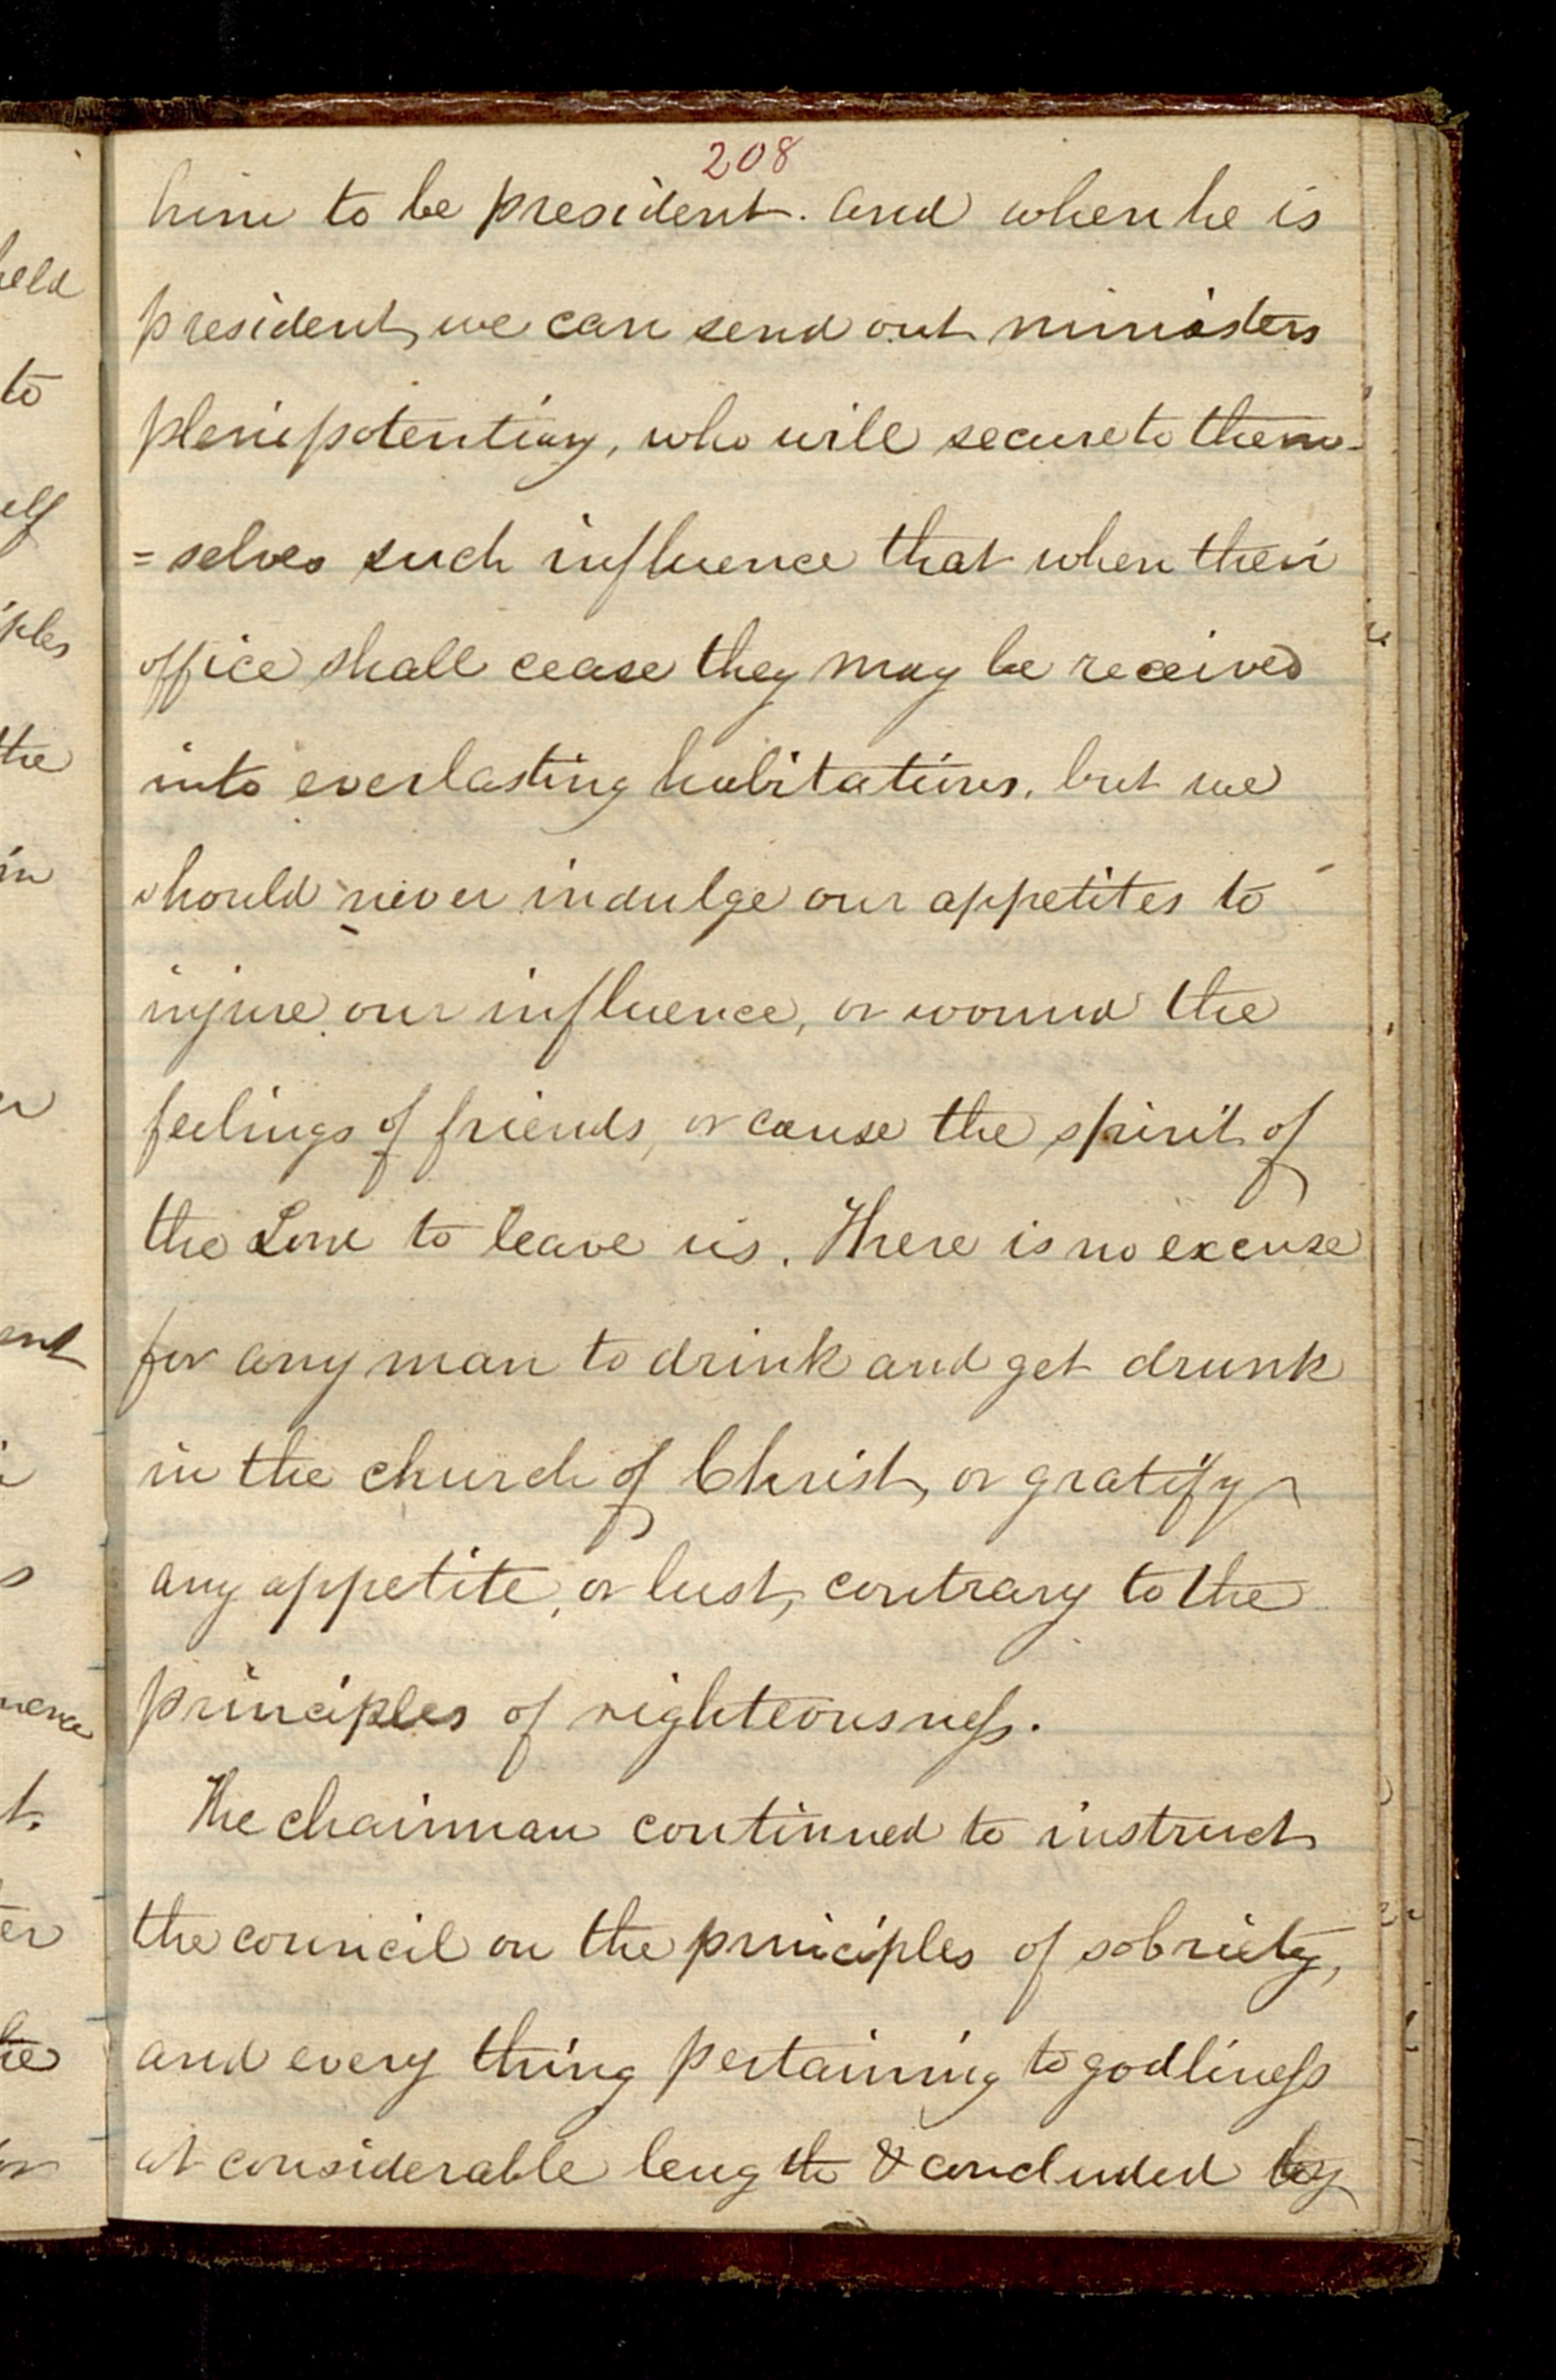 208
him to be president. and when he is
president, we can send out ministers
plenipotentiary, who will secure to them-
=selves such influence that when their
office shall cease they may be received
into everlasting habitations, but we
should never indulge our appetites to
injure our influence, or wound the
feelings of friends, or cause the spirit of
the Lord to leave us. There is no excuse
for any man to drink and get drunk
in the church of Christ, or gratify
any appetite, or lust, contrary to the
principles of righteousness.
The chairman continued to instruct
the council on the principles of sobriety,
and every thing pertaining to godliness
at considerable length & concluded by